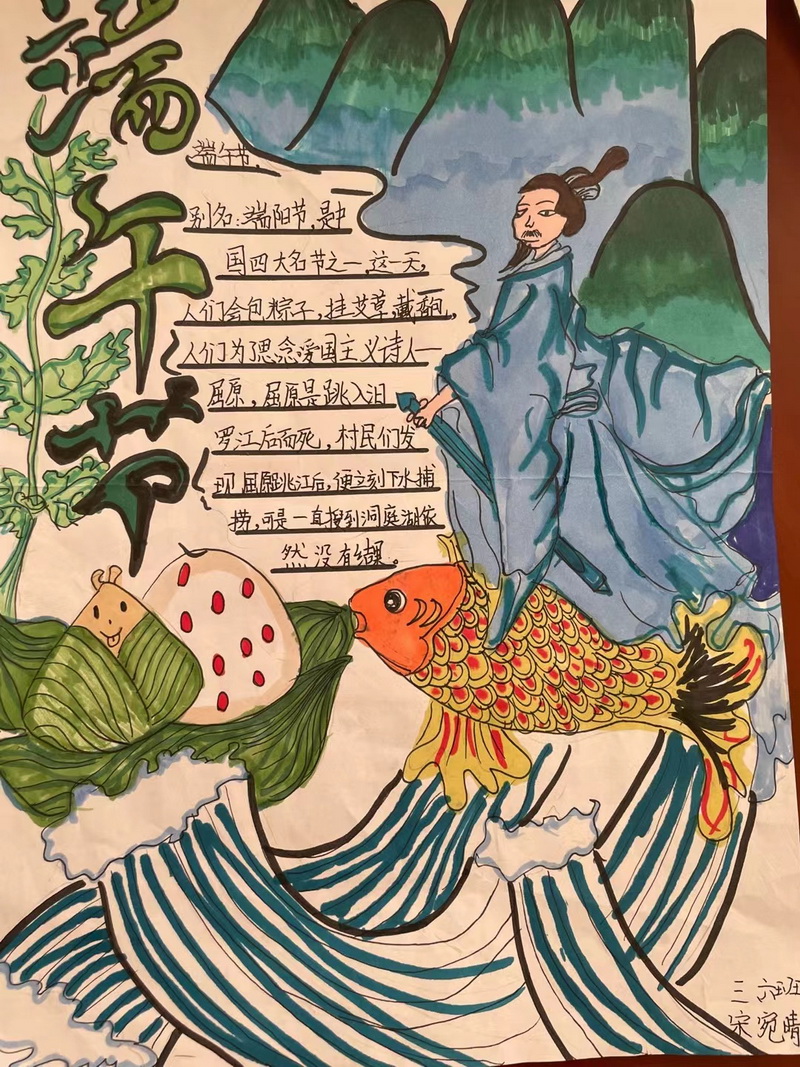 端午节
端午节,
别名:端阳节,是中
国四大名节之一,这一天,
人们会包粽子,挂艾草,藏香包,
人们为思念爱国主义诗人—
屈原,屈原是跳入汨
罗江后而死,村民们发
现屈原跳江后,便立刻下水捕
捞,可是一直搜到洞庭湖依
然没有结果。
三 六班
宋宛晴